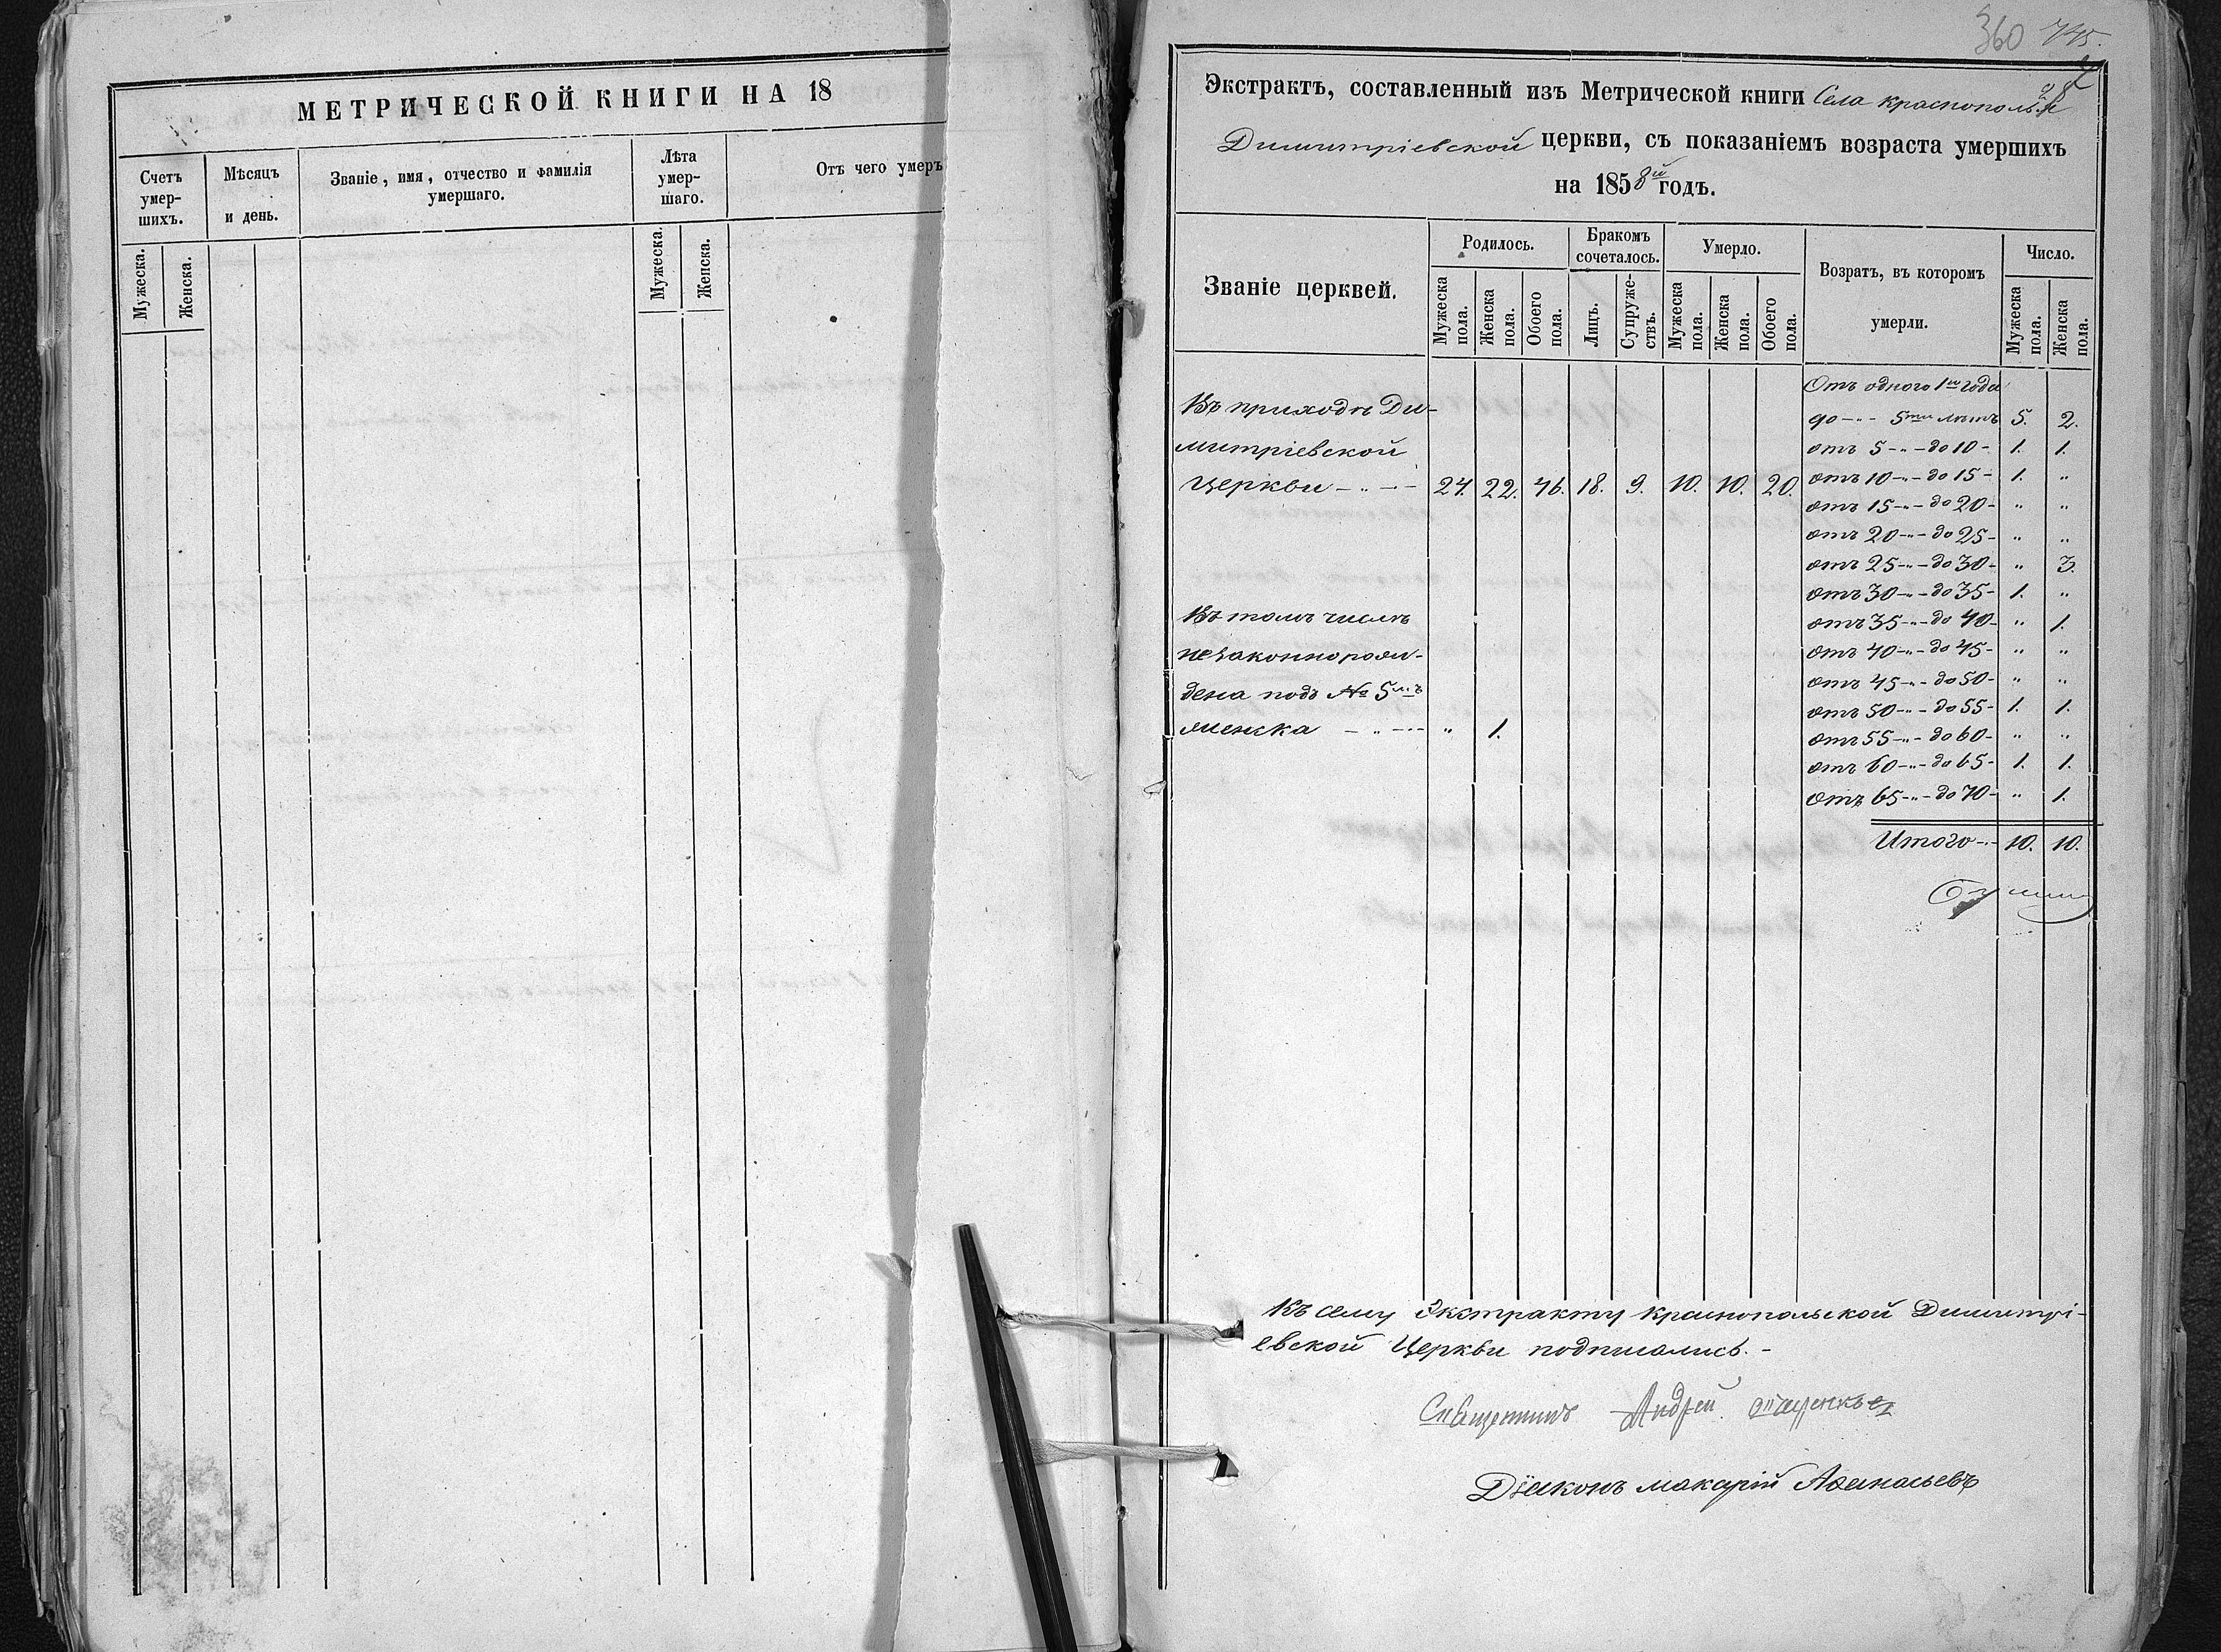 МЕТРИЧЕСКОЙ КНИГИ НА 18
Счетъ умер-шихъ.
Мѣсяцъ и день.
Званіе, имя, отчество и фамилія умершаго.
Лѣта умер-шаго.
Отъ чего умеръ
Мужеска.
Женска.
Мужеска.
Женска.
360
Экстрактъ, составленный изъ Метрической книги Села Краснополья
Димитріевской церкви, съ показаніемъ возраста умершихъ
на 1858й годъ.
Званіе церквей.
Родилось.
Бракомъ сочеталось.
Умерло.
Возратъ, въ которомъ умерли.
Число.
Мужеска пола.
Женска пола.
Обоего пола.
Лицъ.
Супруже-ствъ.
Мужеска пола.
Женска пола.
Обоего пола.
Мужеска пола.
Женска пола.
Въ приходѣ Ди-
митріевской
Церкви - „ - - 24. 22. 46. 18. 9. 10. 10. 20.
Въ томъ числѣ
незаконнорож-
дена подъ № 5мъ
женска - „ - - „ 1.
Отъ одного 1го года
до - - - 5ти лѣтъ 5. 2.
отъ 5 - „ - до 10 - 1. 1.
отъ 10 - „ - до 15 - 1. „
отъ 15 - „ - до 20 - „ „
отъ 20 - „ - до 25 - „ „
отъ 25 - „ - до 30 - „ 3.
отъ 30 - „ - до 35 - 1. „
отъ 35 - „ - до 40 - „ 1.
отъ 40 - „ - до 45 - „ „
отъ 45 - „ - до 50 - „ „
отъ 50 - „ - до 55 - 1. 1.
отъ 55 - „ - до 60 - „ „
отъ 60 - „ - до 65 - 1. 1.
отъ 65 - „ - до 70 - „ 1.
Итого - - 10. 10.
Къ сему Экстракту Краснопольской Димитрі-
евской Церкви подписались. -
Священникъ Андрей
Діаконъ Макарій Аѳанасьевъ